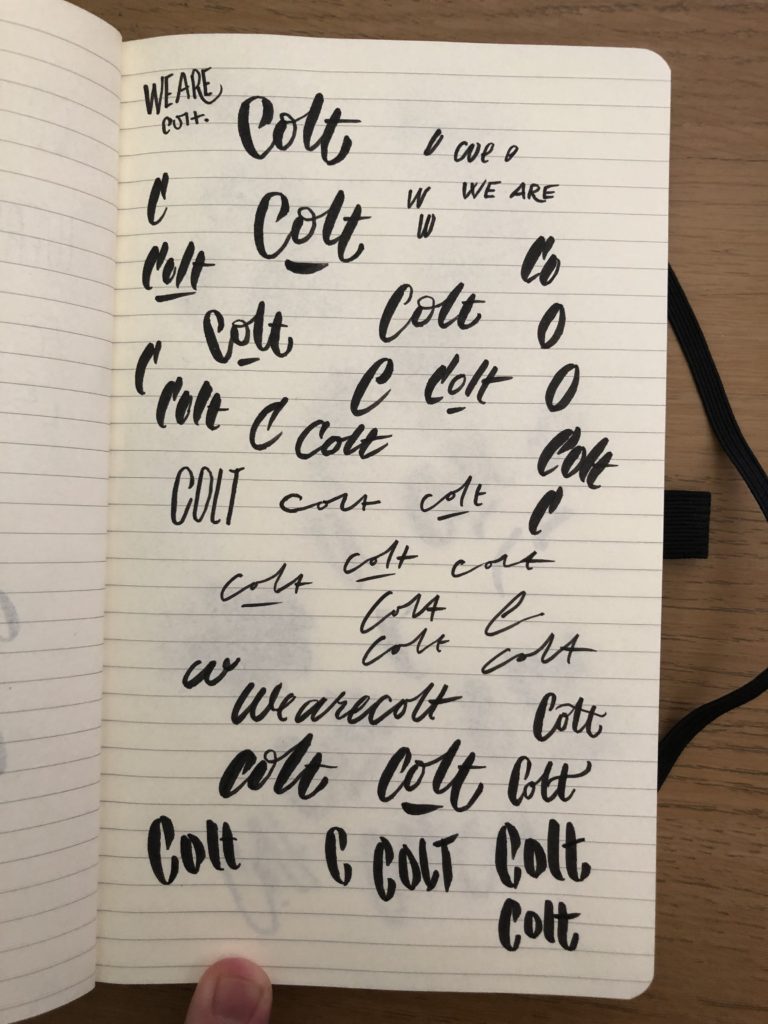 WEARE
colt.
Colt
o we o
W WE ARE
W
C
Colt
Co
Colt
Colt
Colt
O
C
C
Colt
O
Colt
C
Colt
Colt
COLT
colt
colt
C
colt
colt
colt
Colt
C
Colt
colt
w
Wearecolt
Colt
colt
Colt
Colt
Colt
C
COLT
Colt
Colt